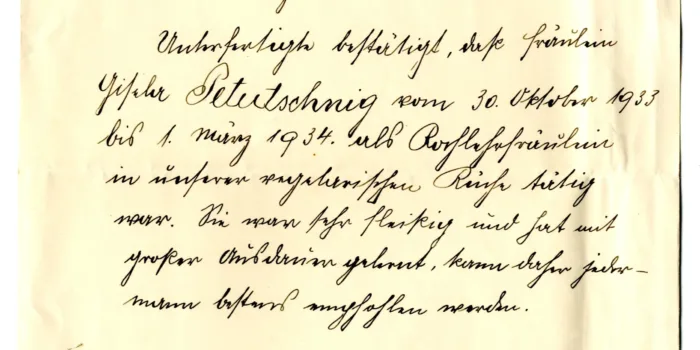 Unterfertigte bestätigt, dass Fräulein
Gisela Petutschnig vom 30. Oktober 1933
bis 1. März 1934. als Kochlehrfräulein
in unserer vegetarischen Küche tätig
war. Sie war sehr fleißig und hat mit
großer Ausdauer gelernt, kann daher jeder-
mann bestens empfohlen werden.